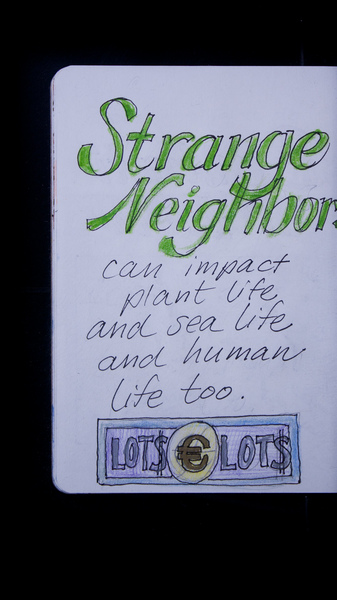 Strange
Neighbors
can impact
plant life
and sea life
and human
life too.
LOT$ € LOT$